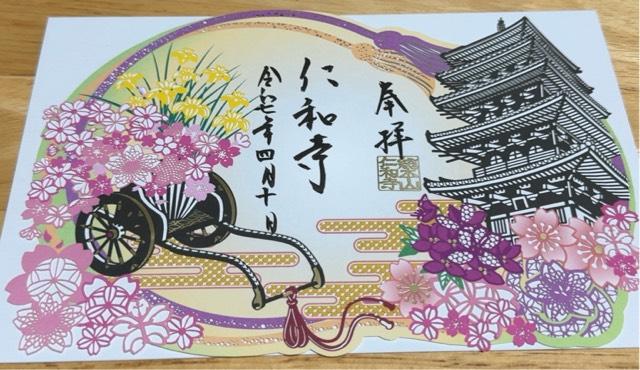 奉拝
総本山
仁和寺
仁和寺
令和七年四月十日